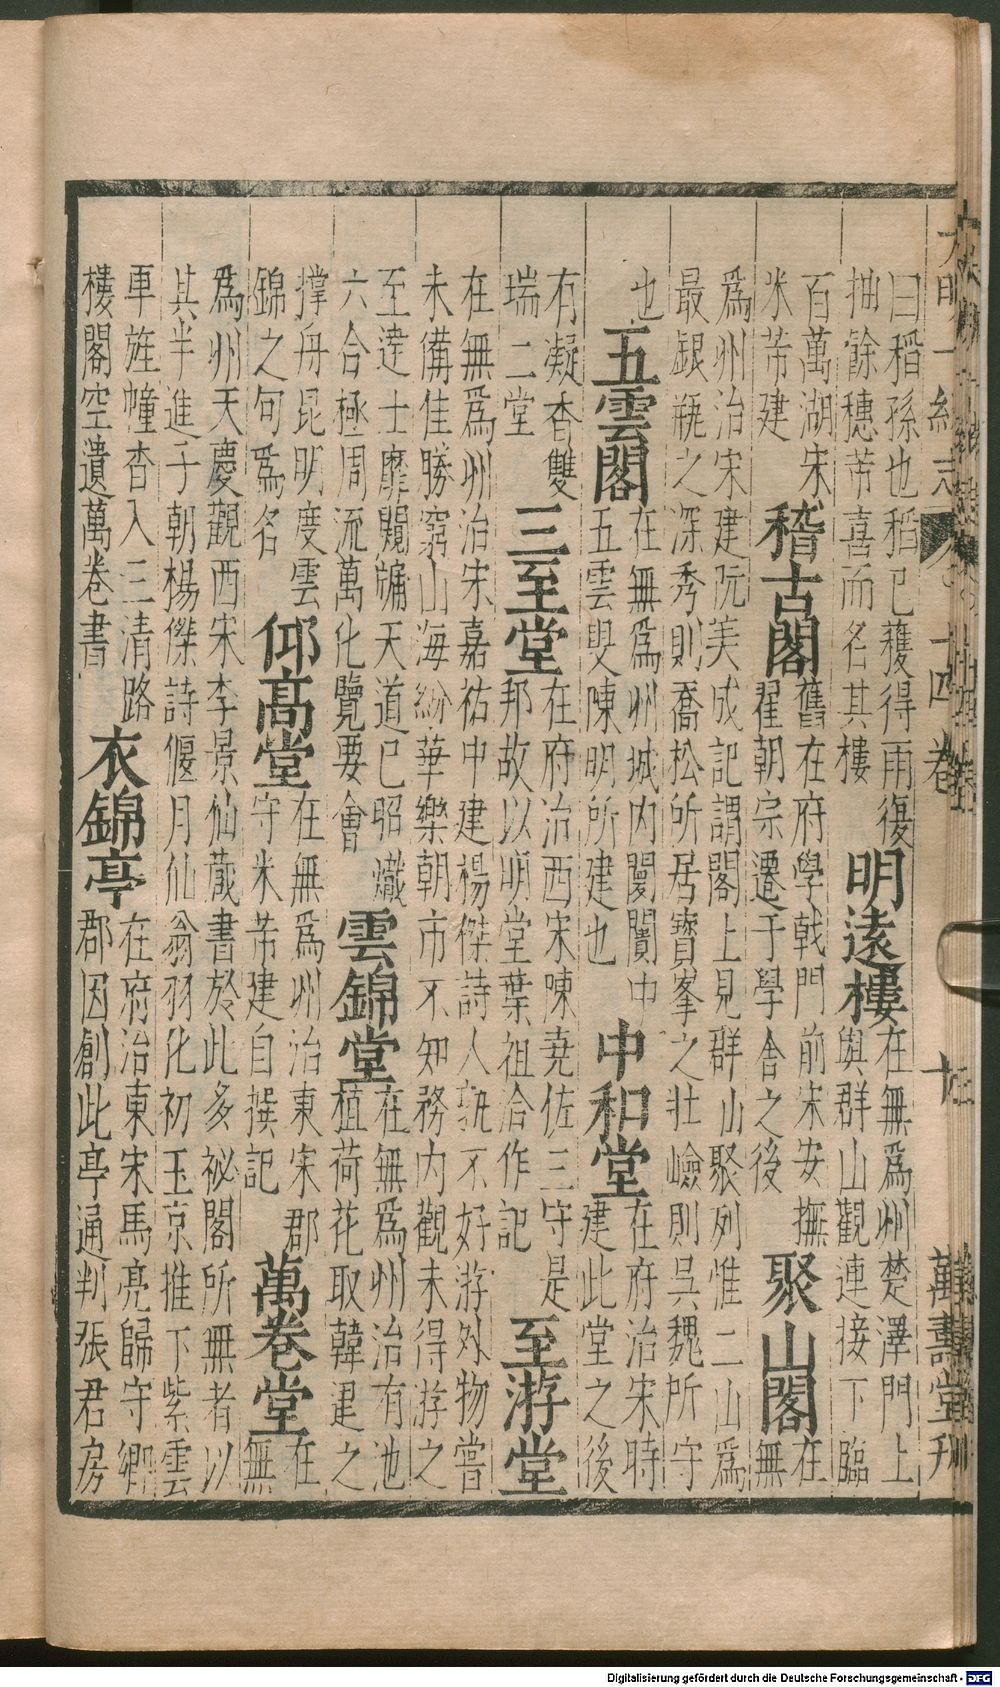 大明一統志 十四卷 萬壽堂刊
曰稻孫也稻已穫得雨復
抽餘穗芾喜而名其樓
明遠樓
在無爲州楚澤門上
與群山觀連接下臨
百萬湖宋
米芾建
稽古閣
舊在府學戟門前宋安撫
翟朝宗遷于學舍之後
聚山閣
在
無
爲州治宋建阮美成記謂閣上見群山聚列惟二山爲
最銀瓶之深秀則喬松所居寶峯之壯嶮則吳魏所守
也
五雲閣
在無爲州城內闤闠中
五雲叟陳明所建也
中和堂
在府治宋時
建此堂之後
有凝香雙
瑞二堂
三至堂
在府治西宋陳堯佐三守是
邦故以明堂葉祖洽作記
至游堂
在無爲州治宋嘉祐中建楊傑詩人孰不好游外物嘗
未備佳勝窮山海紛華樂朝市不知務內觀未得游之
至達士靡闚牖天道已昭爀
六合極周流萬化覽要會
雲錦堂
在無爲州治有池
植荷花取韓建之
撑舟昆明度雲
錦之句爲名
仰高堂
在無爲州治東宋郡
守米芾建自撰記
萬卷堂
在
無
爲州天慶觀西宋李景仙蕆書於此多祕閣所無者以
其半進于朝楊傑詩偃月仙翁羽化初玉京推下紫雲
車旌幢杳入三清路
樓閣空遺萬卷書
衣錦亭
在府治東宋馬亮歸守鄉
郡因創此亭通判張君房
Digitalisierung gefördert durch die Deutsche Forschungsgemeinschaft - DFG